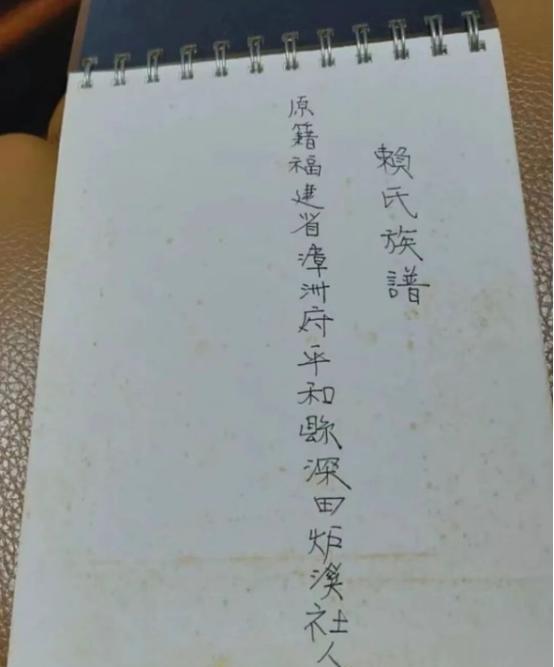 賴氏族譜
原籍福建省漳洲府平和縣深田炉溪社人